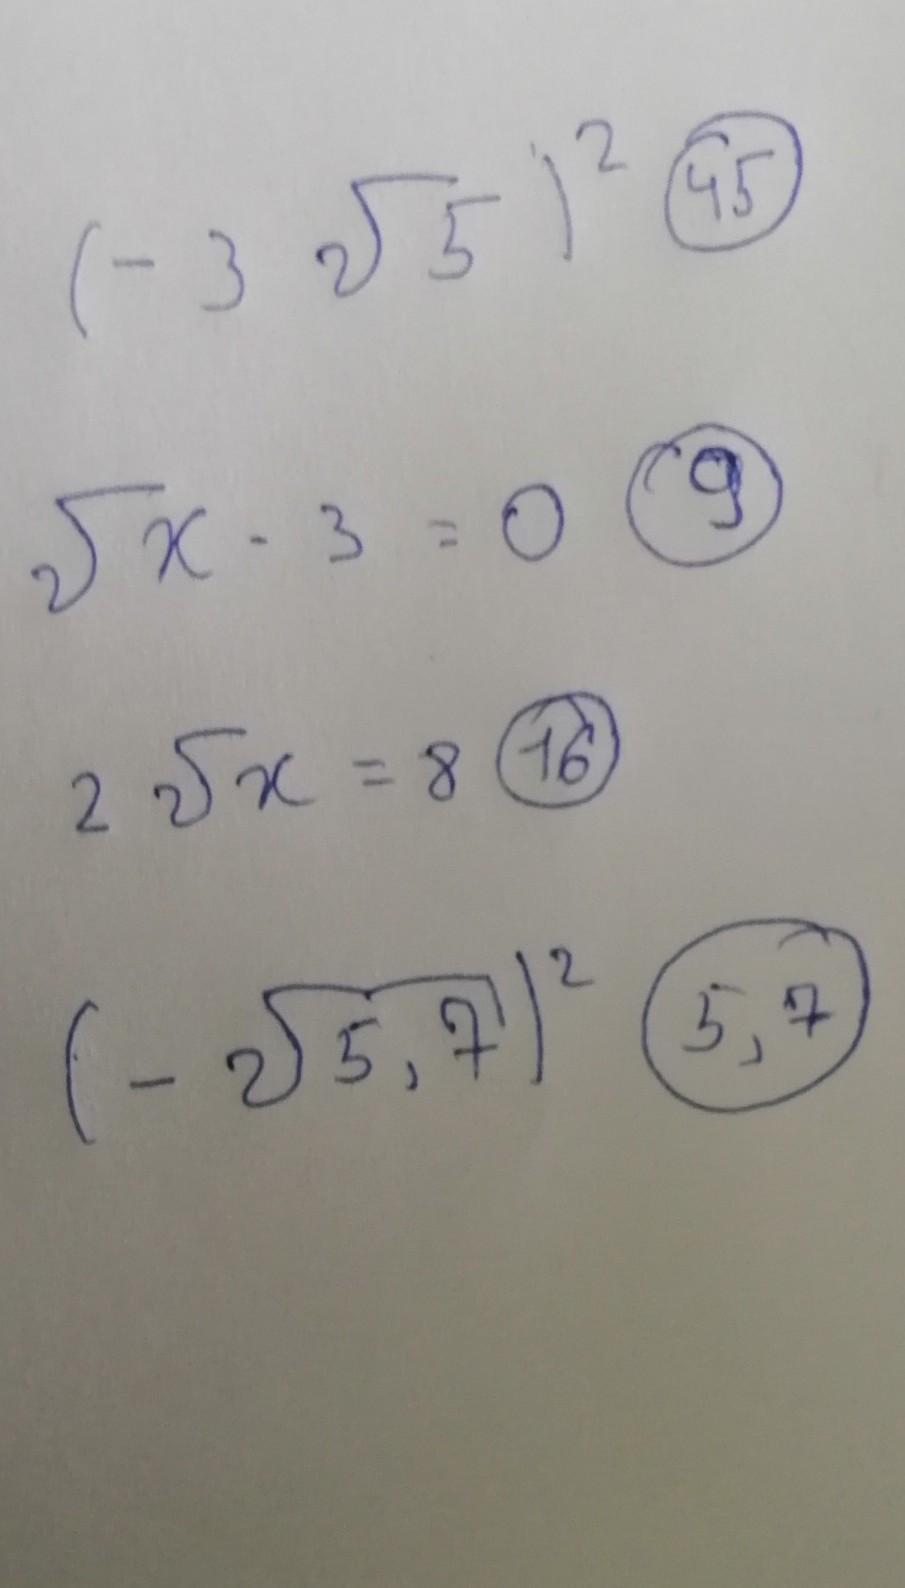 (-3√5)² 45
√x - 3 = 0 9
2√x = 8 16
(-√5,7)² 5,7